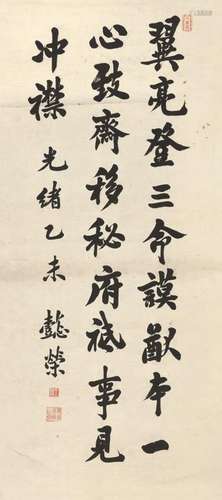 翼亮登三命謨猷本一
心致齋移秘府祗事見
冲襟 光緒乙未 懿榮